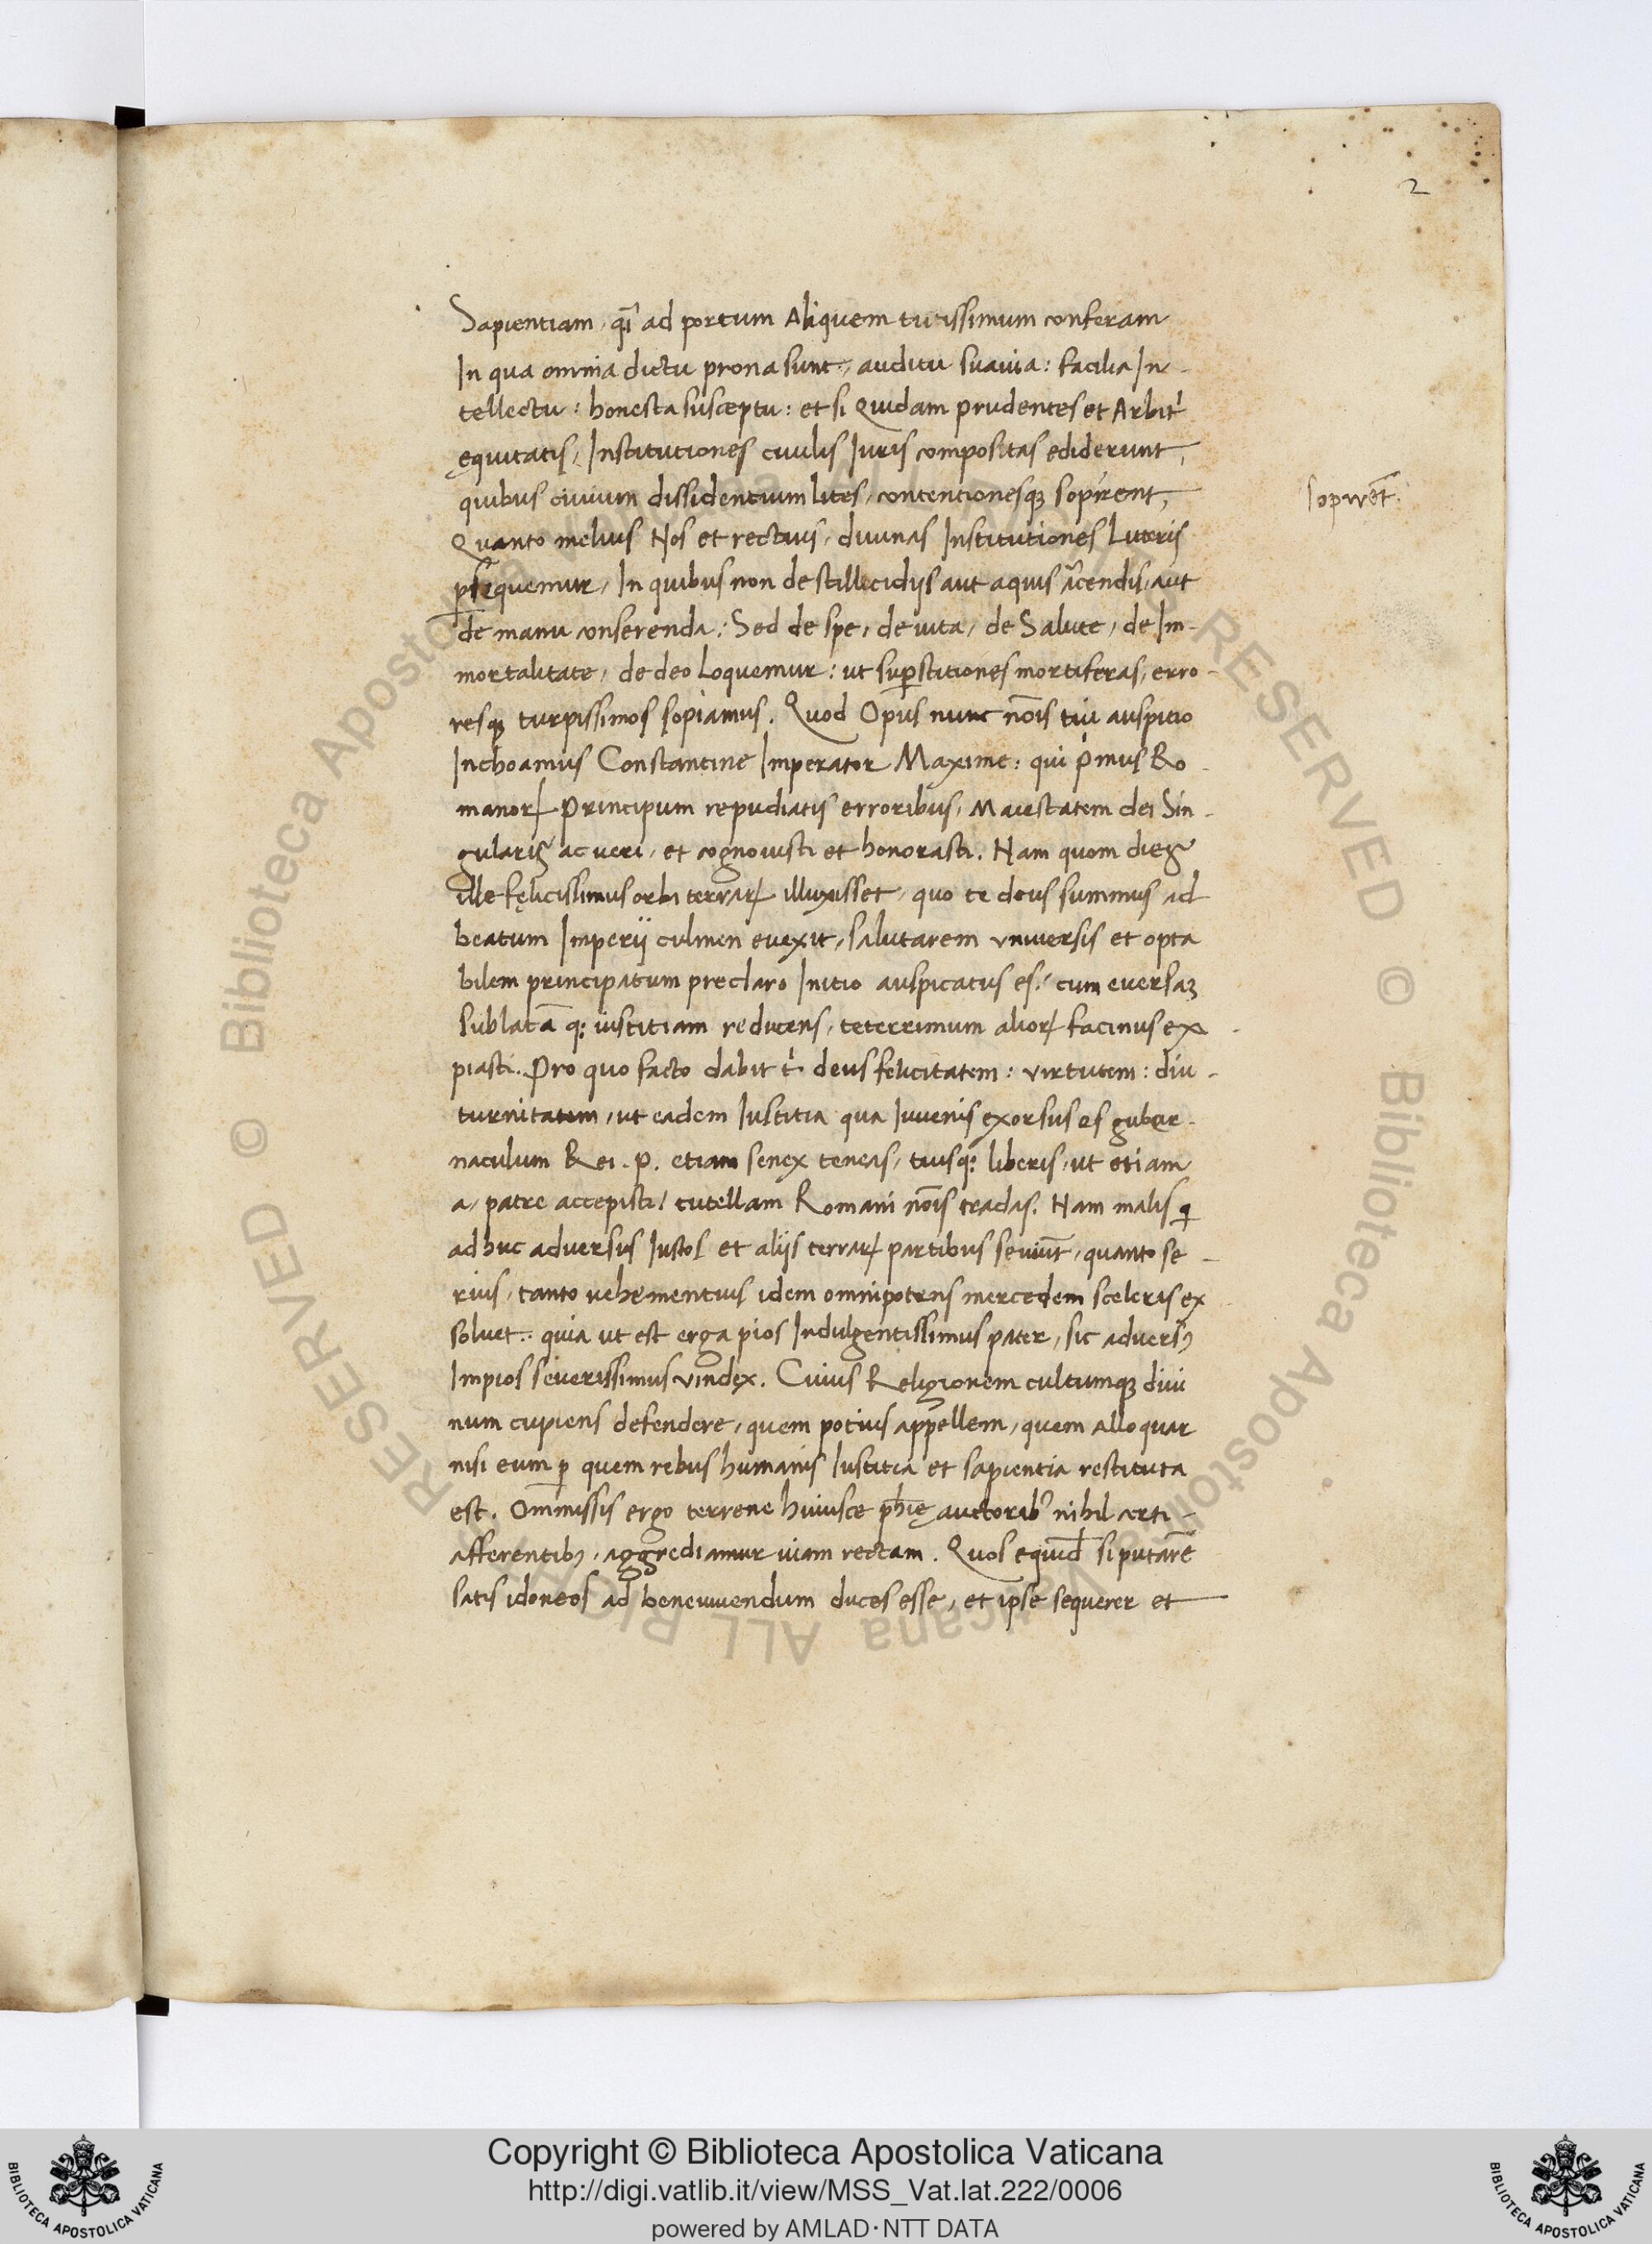 2
Sapientiam, q̃i ad portum Aliquem tutissimum conferam
In qua omnia dictu prona sunt, auditu suavia: facilia In-
tellectu: honesta susceptu: et si Quidam prudentes et Arbitⁱ
ęquitatis, Institutiones civilis Iuris compositas ediderunt,
quibus civium dissidentium lites, contentionesqꝫ sopirent,
sopirēt.
Quanto melius Nos et rectius, divinas Institutiones Litteris
ꝑsequemur, In quibus non de stillicidijs aut aquis ārcendis, aut
de manu conserenda: Sed de spe, de vita, de Salute, de Im-
mortalitate, de deo Loquemur: ut suꝑstitiones mortiferas, erro-
resqꝫ turpissimos sopiamus. Quod Opus nunc nōis tui auspitio
Inchoamus Constantine Imperator Maxime: qui pⁱmus Ro-
manorꝝ Principum repudiatis erroribus, Maiestatem dei Sin-
gularis ac veri, et cognovisti et honorasti. Nam quom dies
ille fęlicissimus orbi terrarꝝ illuxisset, quo te deus summus ad
beatum Imperij culmen evexit, salutarem vniversis et opta
bilem principatum preclaro Initio auspicatus es: cum eversaꝫ
sublatā q: iustitiam reducens, teterrimum aliorꝝ facinus ex-
piasti. Pro quo facto dabit tⁱ deus felicitatem: virtutem: diu-
turnitatem, ut eadem Iustitia qua Iuvenis exorsus es guber-
naculum Rei. P. etiam senex teneas, tuisq: liberis, ut etiam
a, patre accepisti, tutellam Romani nōis tradas. Nam malis qi
adhuc adversus Iustos et alijs terrarꝝ partibus seviūt, quanto se-
rius, tanto vehementius idem omnipotens mercedem sceleris ex
solvet: quia ut est erga pios Indulgentissimus pater, sic adversꝰ
Impios severissimus vindex. Cuius Religionem cultumqꝫ divi
num cupiens defendere, quem potius appellem, quem Alloquar
nisi eum ꝑ quem rebus humanis Iustitia et sapientia restituta
est. Ommissis ergo terrene huiusce phīę auctoribꝰ nihil certi-
afferentibꝰ, aggrediamur viam rectam. Quos equid̄ si putarē
satis idoneos ad benevivendum duces esse, et ipse sequerer et
© Biblioteca Apostolica Vaticana ALL RIGHTS RESERVED
© Biblioteca Apostolica Vaticana ALL RIGHTS RESERVED
BIBLIOTECA APOSTOLICA VATICANA
Copyright © Biblioteca Apostolica Vaticana
http://digi.vatlib.it/view/MSS_Vat.lat.222/0006
powered by AMLAD·NTT DATA
BIBLIOTECA APOSTOLICA VATICANA